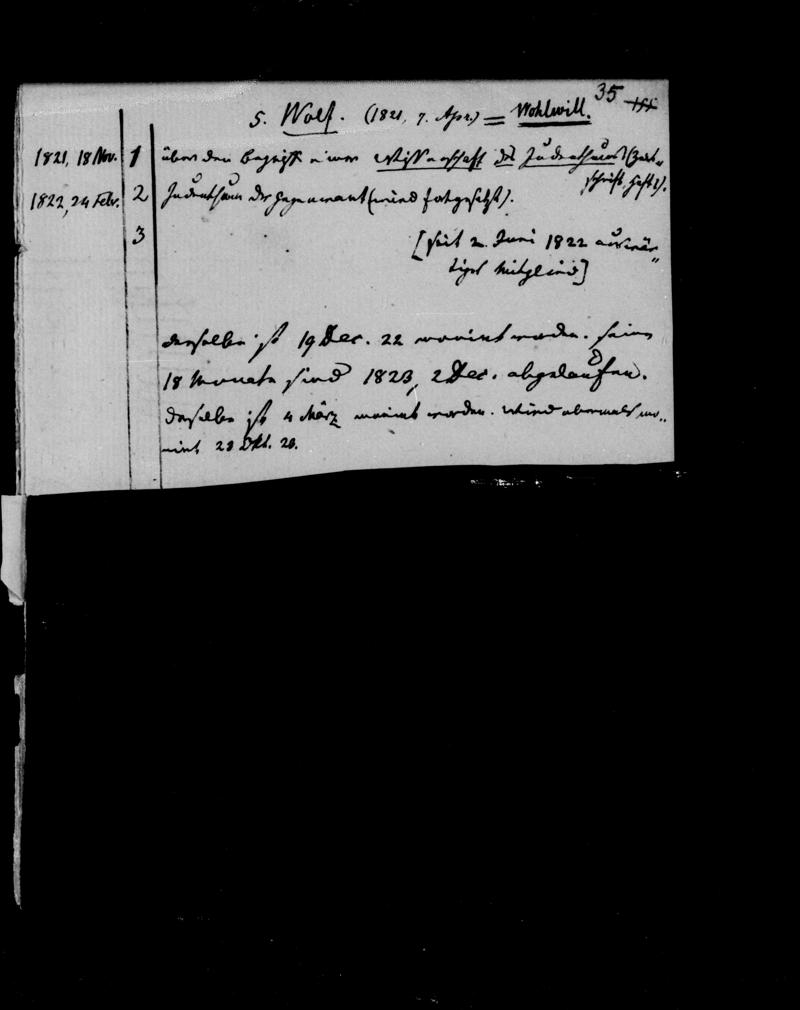 35
5. Wolf. (1821, 7. Apr.) = Wohlwill.
1821, 18 Nov. 1 über den Begriff einer Wissenschaft des Judenthums (Zeit-
schrift, Heft 2).
1822, 24 Febr. 2 Judenthum der Gegenwart (wird fortgesetzt).
3 [seit 2. Juni 1822 auswär-
tiges Mitglied]
derselbe ist 19 Dec. 22 monirt worden. seine
18 Monate sind 1823, 2 Dec. abgelaufen.
derselbe ist 4 März monirt worden. Wird abermals mo-
nirt 28 Okt.